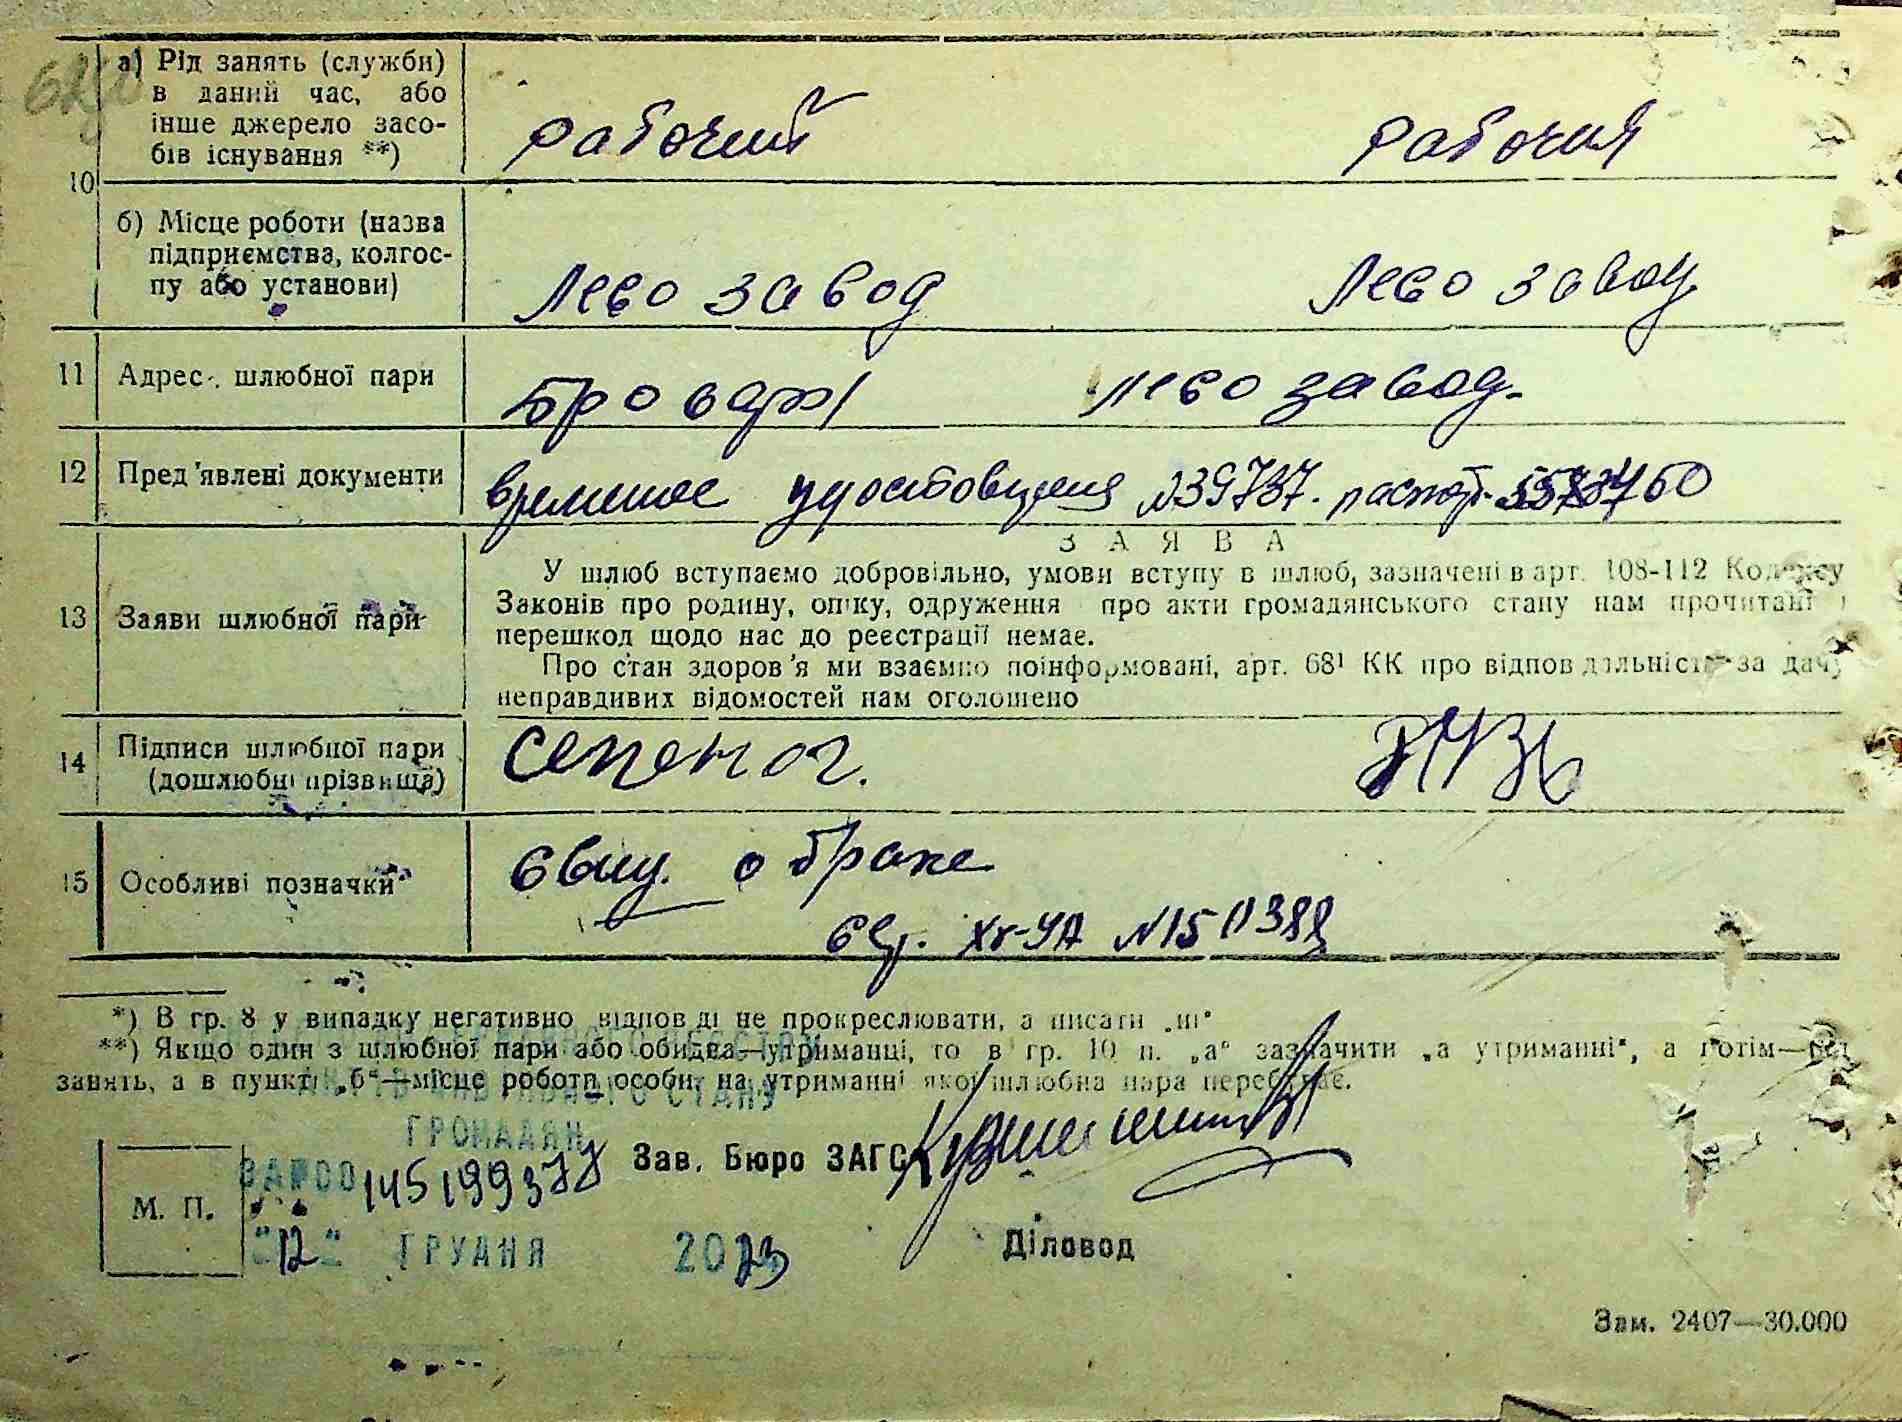 10
а) Рід занять (служби)
в даний час, або
інше джерело засо-
бів існування **)
рабочий рабочия
б) Місце роботи (назва
підприємства, колгос-
пу або установи)
Лесо завод Лесо завод
11 Адрес шлюбної пари Бровары Лесо завод.
12 Пред'явлені документи
временое удостоверения №39737. паспорт
13 Заяви шлюбної пари
ЗАЯВА
У шлюб вступаємо добровільно, умови вступу в шлюб, зазначені в арт. 108-112 Кодексу
Законів про родину, опіку, одруження про акти громадянського стану нам прочитані і
перешкод щодо нас до реєстрації немає.
Про стан здоров'я ми взаємно поінформовані, арт. 68¹ КК про відповідальність за дачу
неправдивих відомостей нам оголошено
14 Підписи шлюбної пари
(дошлюбні прізвища)
15 Особливі позначки
о браке
№150388
*) В гр. 8 у випадку негативно відповіді не прокреслювати, а писати „ні“
**) Якщо один з шлюбної пари або обидва—утриманці, то в гр. 10 п. „а“ зазначити „а утриманні“, а потім—рід
занять, а в пункті „б“—місце роботи особи, на утриманні якої шлюбна пара перебуває.
АКТІВ ЦИВІЛЬНОГО СТАНУ
ГРОМАДЯН
Зав. Бюро ЗАГС
М. П.
"12" ГРУДНЯ 2023
Діловод
Зам. 2407—30.000